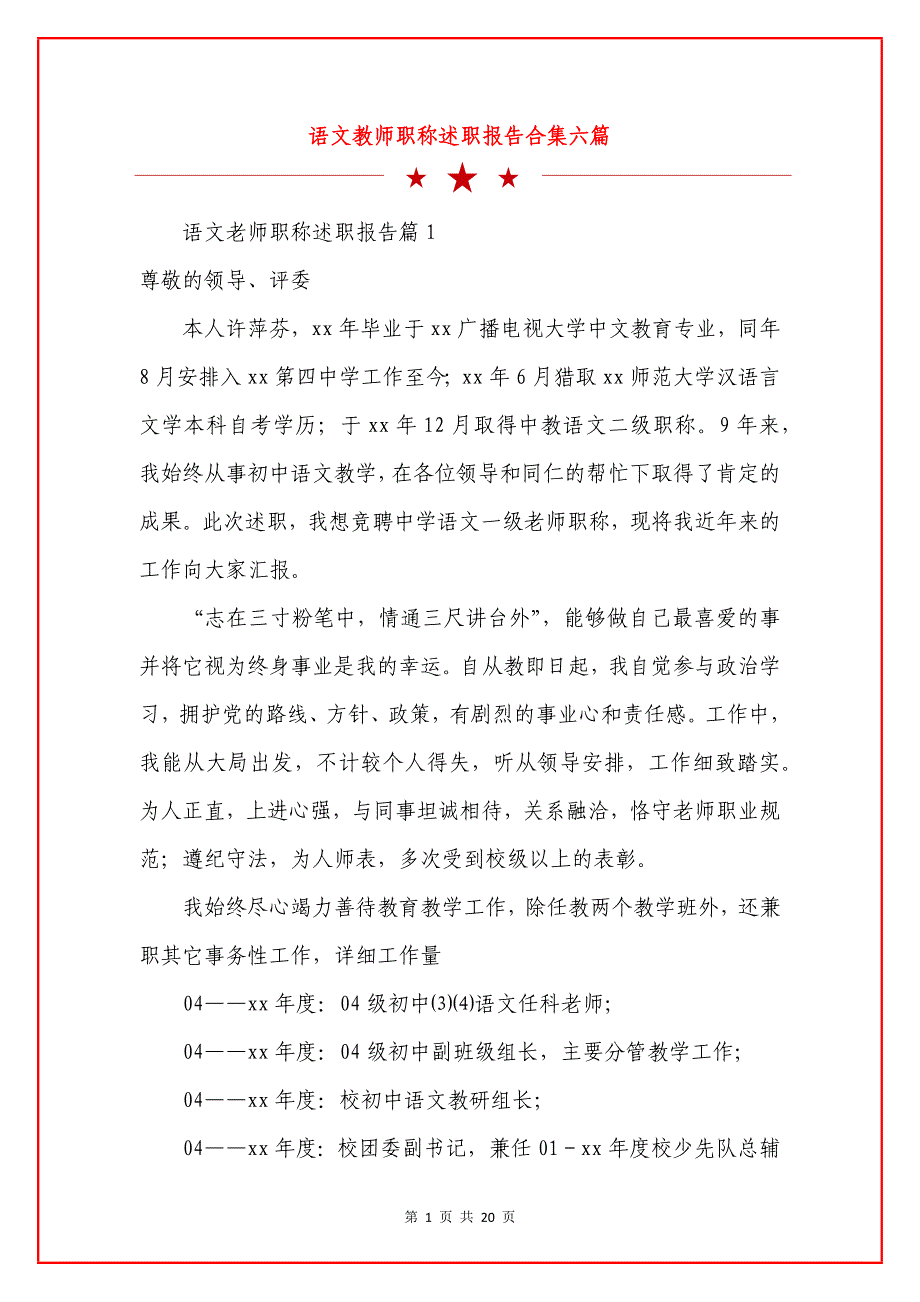 语文教师职称述职报告合集六篇
语文老师职称述职报告篇 1
尊敬的领导、评委
本人许萍芬，xx 年毕业于 xx 广播电视大学中文教育专业，同年
8 月安排入 xx 第四中学工作至今；xx 年 6 月猎取 xx 师范大学汉语言
文学本科自考学历；于 xx 年 12 月取得中教语文二级职称。9 年来，
我始终从事初中语文教学，在各位领导和同仁的帮忙下取得了肯定的
成果。此次述职，我想竞聘中学语文一级老师职称，现将我近年来的
工作向大家汇报。
“志在三寸粉笔中，情通三尺讲台外”，能够做自己最喜爱的事
并将它视为终身事业是我的幸运。自从教即日起，我自觉参与政治学
习，拥护党的路线、方针、政策，有剧烈的事业心和责任感。工作中，
我能从大局出发，不计较个人得失，听从领导安排，工作细致踏实。
为人正直，上进心强，与同事坦诚相待，关系融洽，恪守老师职业规
范；遵纪守法，为人师表，多次受到校级以上的表彰。
我始终尽心竭力善待教育教学工作，除任教两个教学班外，还兼
职其它事务性工作，详细工作量
04——xx 年度：04 级初中⑶⑷语文任科老师；
04——xx 年度：04 级初中副班级组长，主要分管教学工作；
04——xx 年度：校初中语文教研组长；
04——xx 年度：校团委副书记，兼任 01－xx 年度校少先队总辅
第 1 页 共 20 页